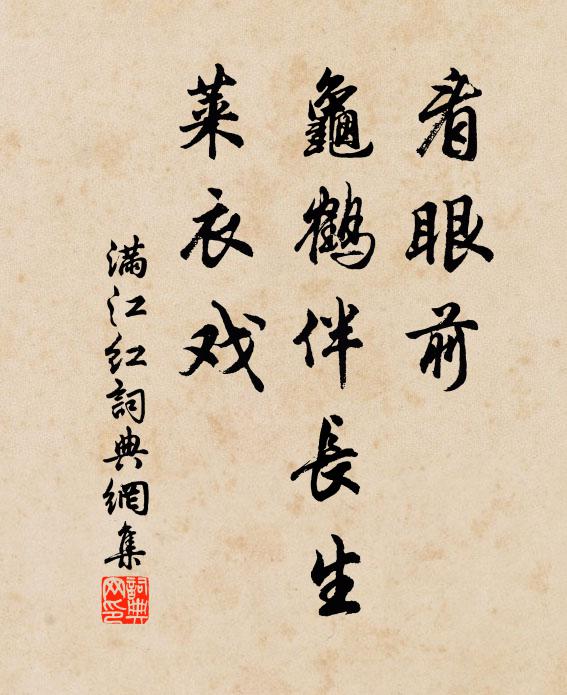 看眼前
龜鶴伴長生
萊衣戏
满江红詞典網集
詞典网印